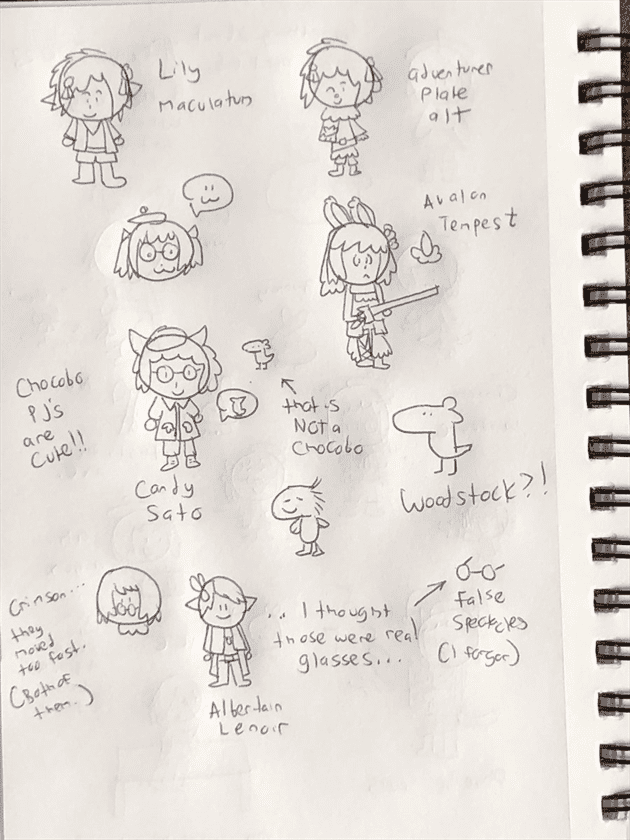 Lily
maculatum
adventurer
plate
alt
Avalon
Tempest
Chocobo
PJ's
are
cute!!
that is
NOT a
chocobo
Candy
Sato
Woodstock?!
Crimson...
they
moved
too fast.
(Both of
them.)
... I thought
those were real
glasses...
false
Speckcles
(I forgor)
Albertain
Lenoir